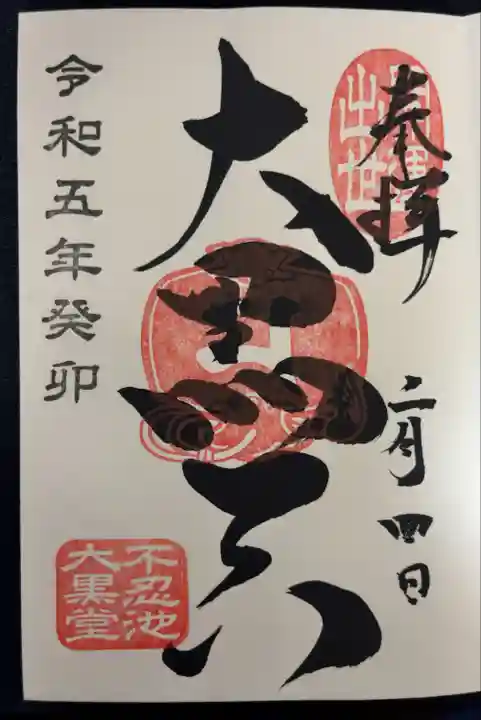 奉拝
開運
出世
二月四日
大黒天
令和五年癸卯
不忍池
大黒堂